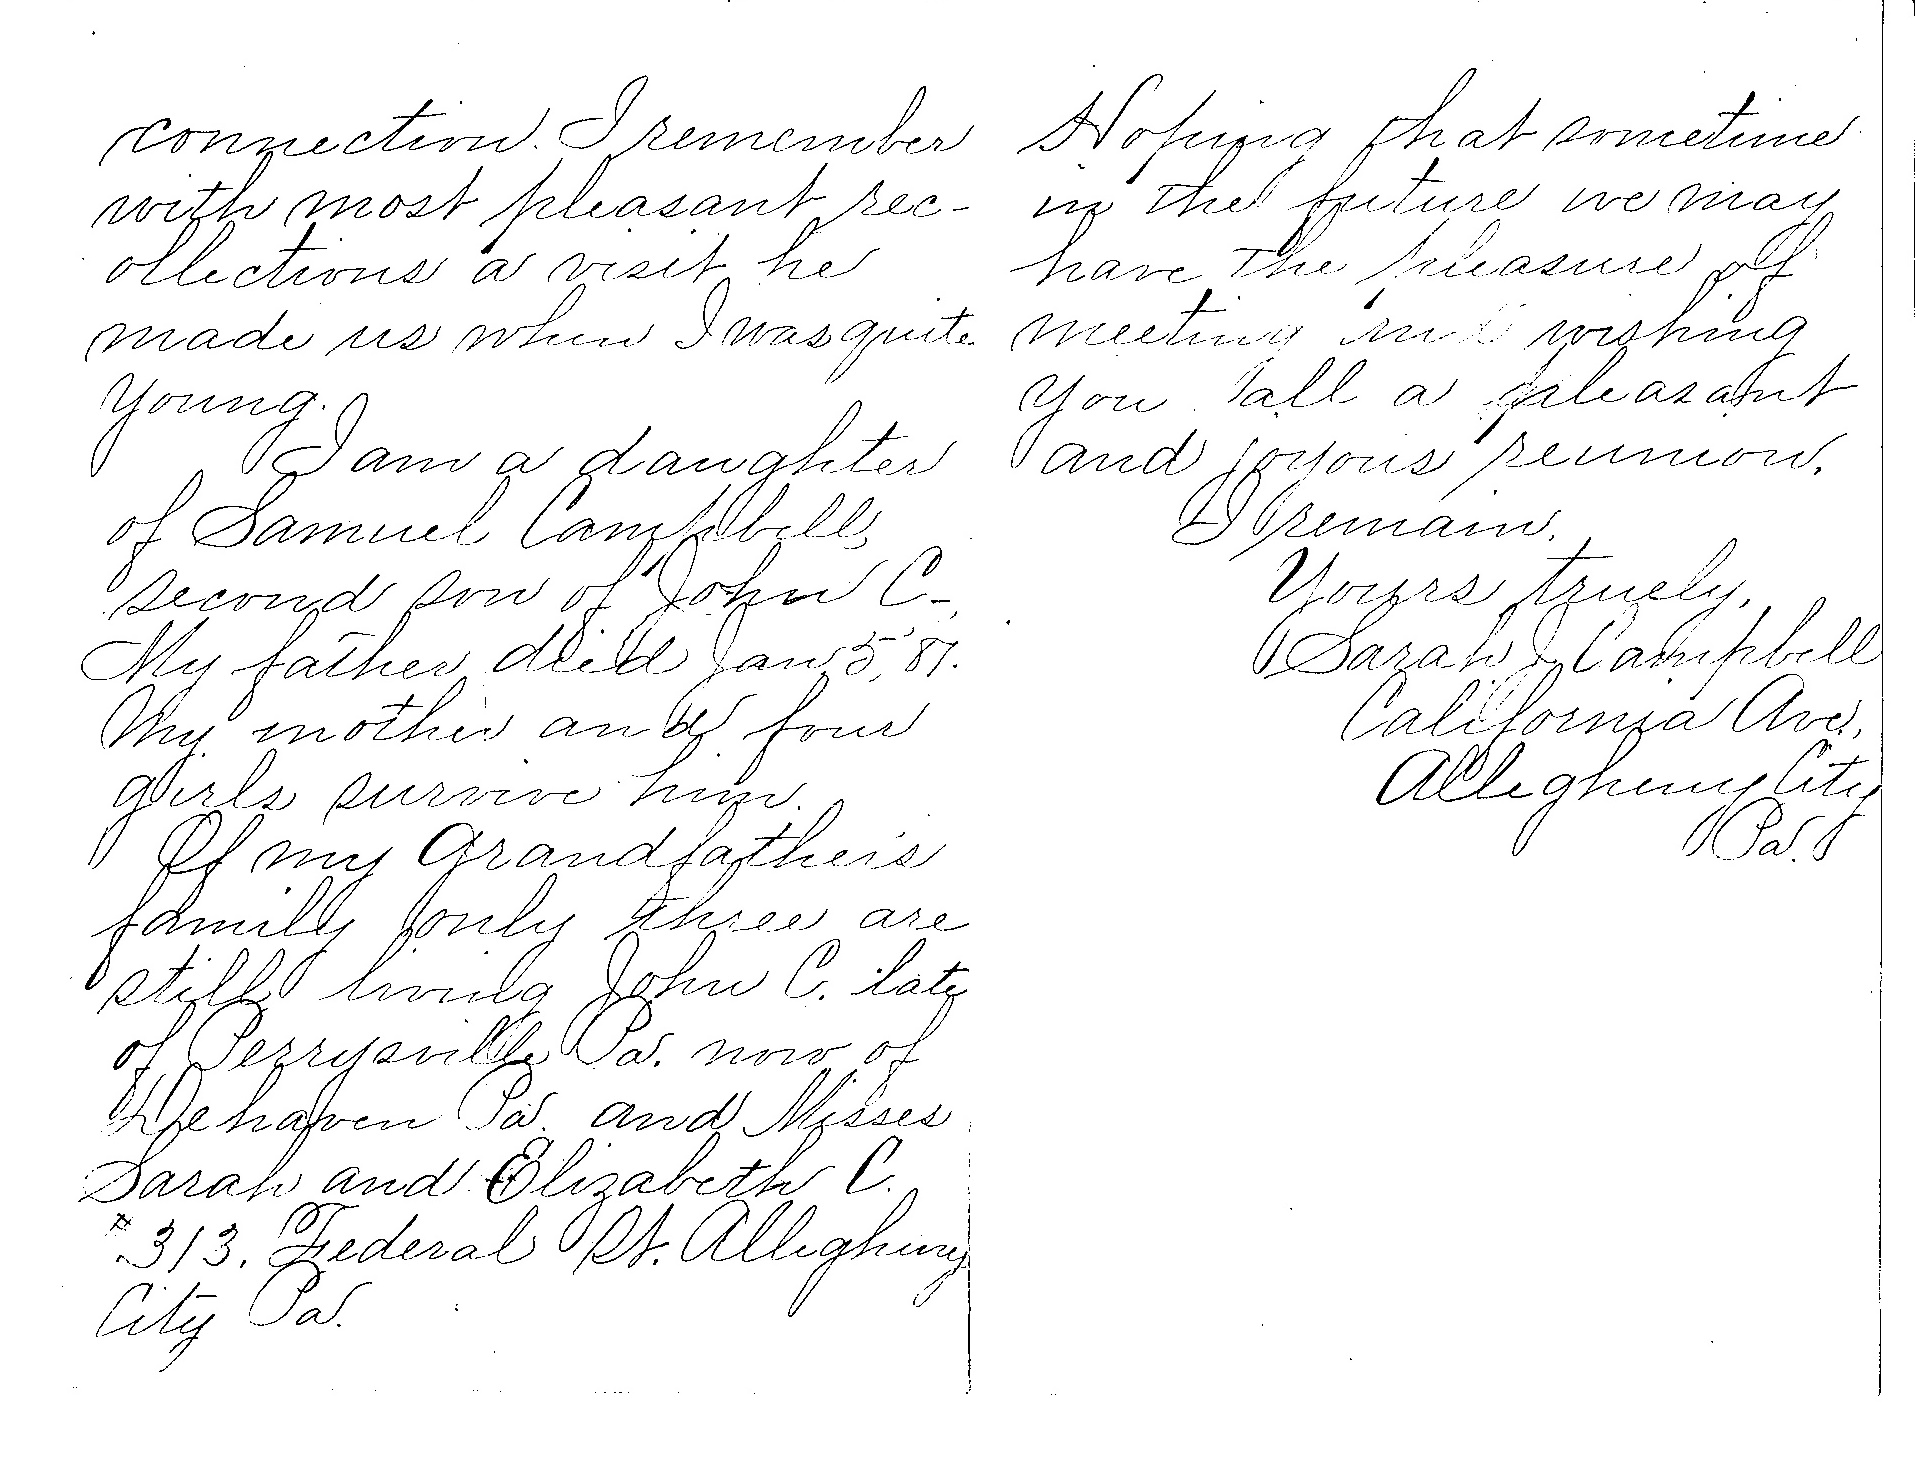 connection. I remember
with most pleasant rec-
ollections a visit he
made us when I was quite
young.
I am a daughter
of Samuel Campbell,
second son of John C-,
My father died Jan, 5, '81.
My mother and four
girls survive him.
Of my Grandfathers
family only three are
still living John C. late
of Perrysville Pa. now of
Dehaven Pa. and Misses
Sarah and Elizabeth C.
#313. Federal St. Allegheny
City Pa.
Hoping that sometime
in the future we may
have the pleasure of
meeting and wishing
you all a pleasant
and joyous reunion.
I remain.
Yours truely,
Sarah J Campbell
California Ave.,
Allegheny City
Pa.